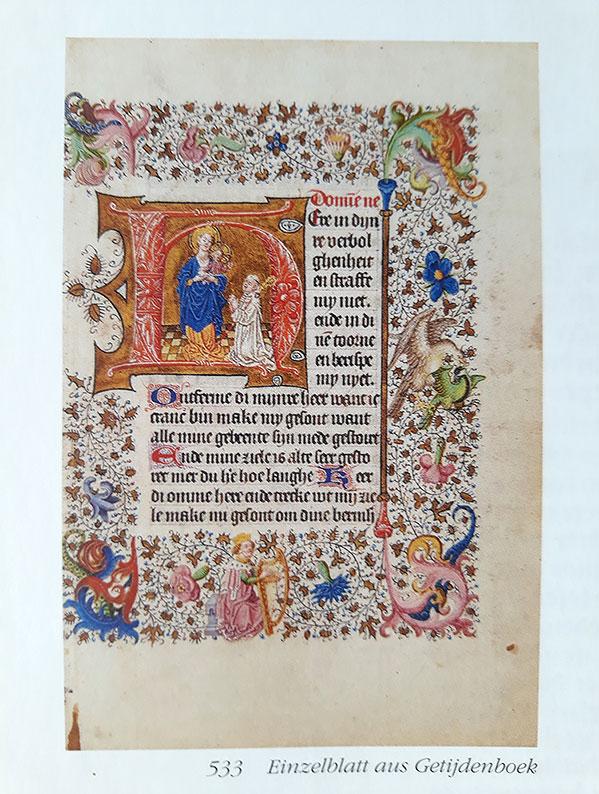 H
Domīe ne
Ere in dyn
re verbol
ghenheit
en straffe
my niet.
ende in di
nē toorne
en berispe
my nyet.
Ontferme di mijnre heer want ic
cranc bin make my gesont want
alle mine gebeente sijn mede gestoert
Ende mine ziele is alte seer gesto
ret mer du h'e hoe langhe Keer
di omme here ende trecke wt mij zie
le make mi gesont om dine bermh
533 Einzelblatt aus Getijdenboek